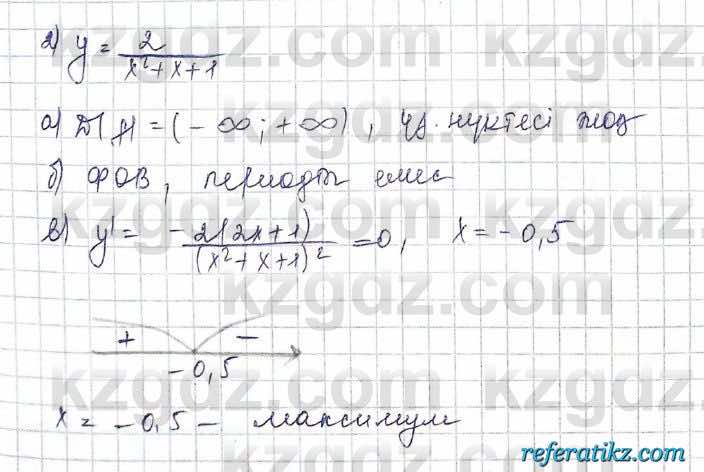 2) y = 2/(x²+x+1)
а) D(y) = (-∞; +∞), үз. нүктесі жоқ
б) ФОВ, периодты емес
в) y' = - 2(2x+1)/(x²+x+1)² = 0, x = -0,5
+ -
-0,5
x = -0,5 - максимум
referatikz.com